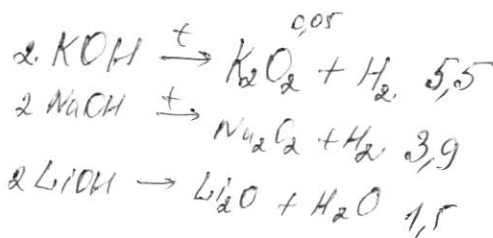 0,05
2. KOH t→ K₂O₂ + H₂. 5,5
2 NaOH t→ Na₂O₂ + H₂. 3,9
2 LiOH → Li₂O + H₂O 1,5